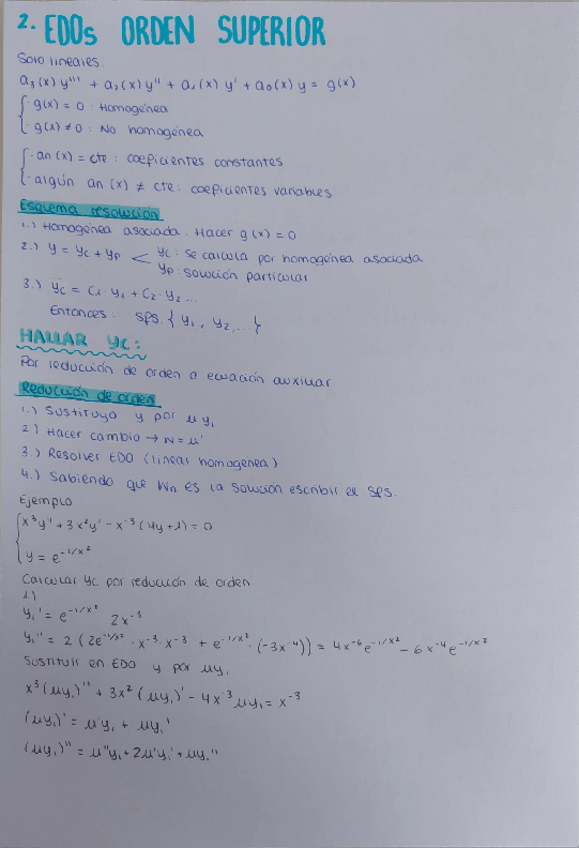 2. EDOs ORDEN SUPERIOR
Solo lineales.
a₃(x) y''' + a₂(x) y'' + a₁(x) y' + a₀(x) y = g(x)
{ · g(x) = 0 : Homogénea
· g(x) ≠ 0 : No homogénea
{ · an(x) = cte : coeficientes constantes
· algún an(x) ≠ cte : coeficientes variables
Esquema resolución
1.) Homogénea asociada. Hacer g(x) = 0
2.) y = yc + yp < yc : se calcula por homogénea asociada
yp : solución particular
3.) yc = C₁·y₁ + C₂·y₂ ...
Entonces: sps. { y₁, y₂, ... }
HALLAR yc :
Por reducción de orden o ecuación auxiliar
Reducción de orden
1.) Sustituyo y por μy₁
2) Hacer cambio → W = μ'
3) Resolver EDO (lineal homogenea)
4.) Sabiendo que Wn es la solución escribir el sps.
Ejemplo
{ x³y'' + 3x²y' - x⁻³(4y+1) = 0
y = e^(-1/x²)
Calcular yc por reducción de orden
1.)
y₁' = e^(-1/x²) 2x⁻³
y₁'' = 2 (2e^(-1/x²) · x⁻³·x⁻³ + e^(-1/x²) · (-3x⁻⁴)) = 4x⁻⁶e^(-1/x²) - 6x⁻⁴e^(-1/x²)
Sustituir en EDO y por μy₁
x³(μy₁)'' + 3x²(μy₁)' - 4x⁻³μy₁ = x⁻³
(μy₁)' = μ'y₁ + μy₁'
(μy₁)'' = μ''y₁ + 2μ'y₁' + μy₁''